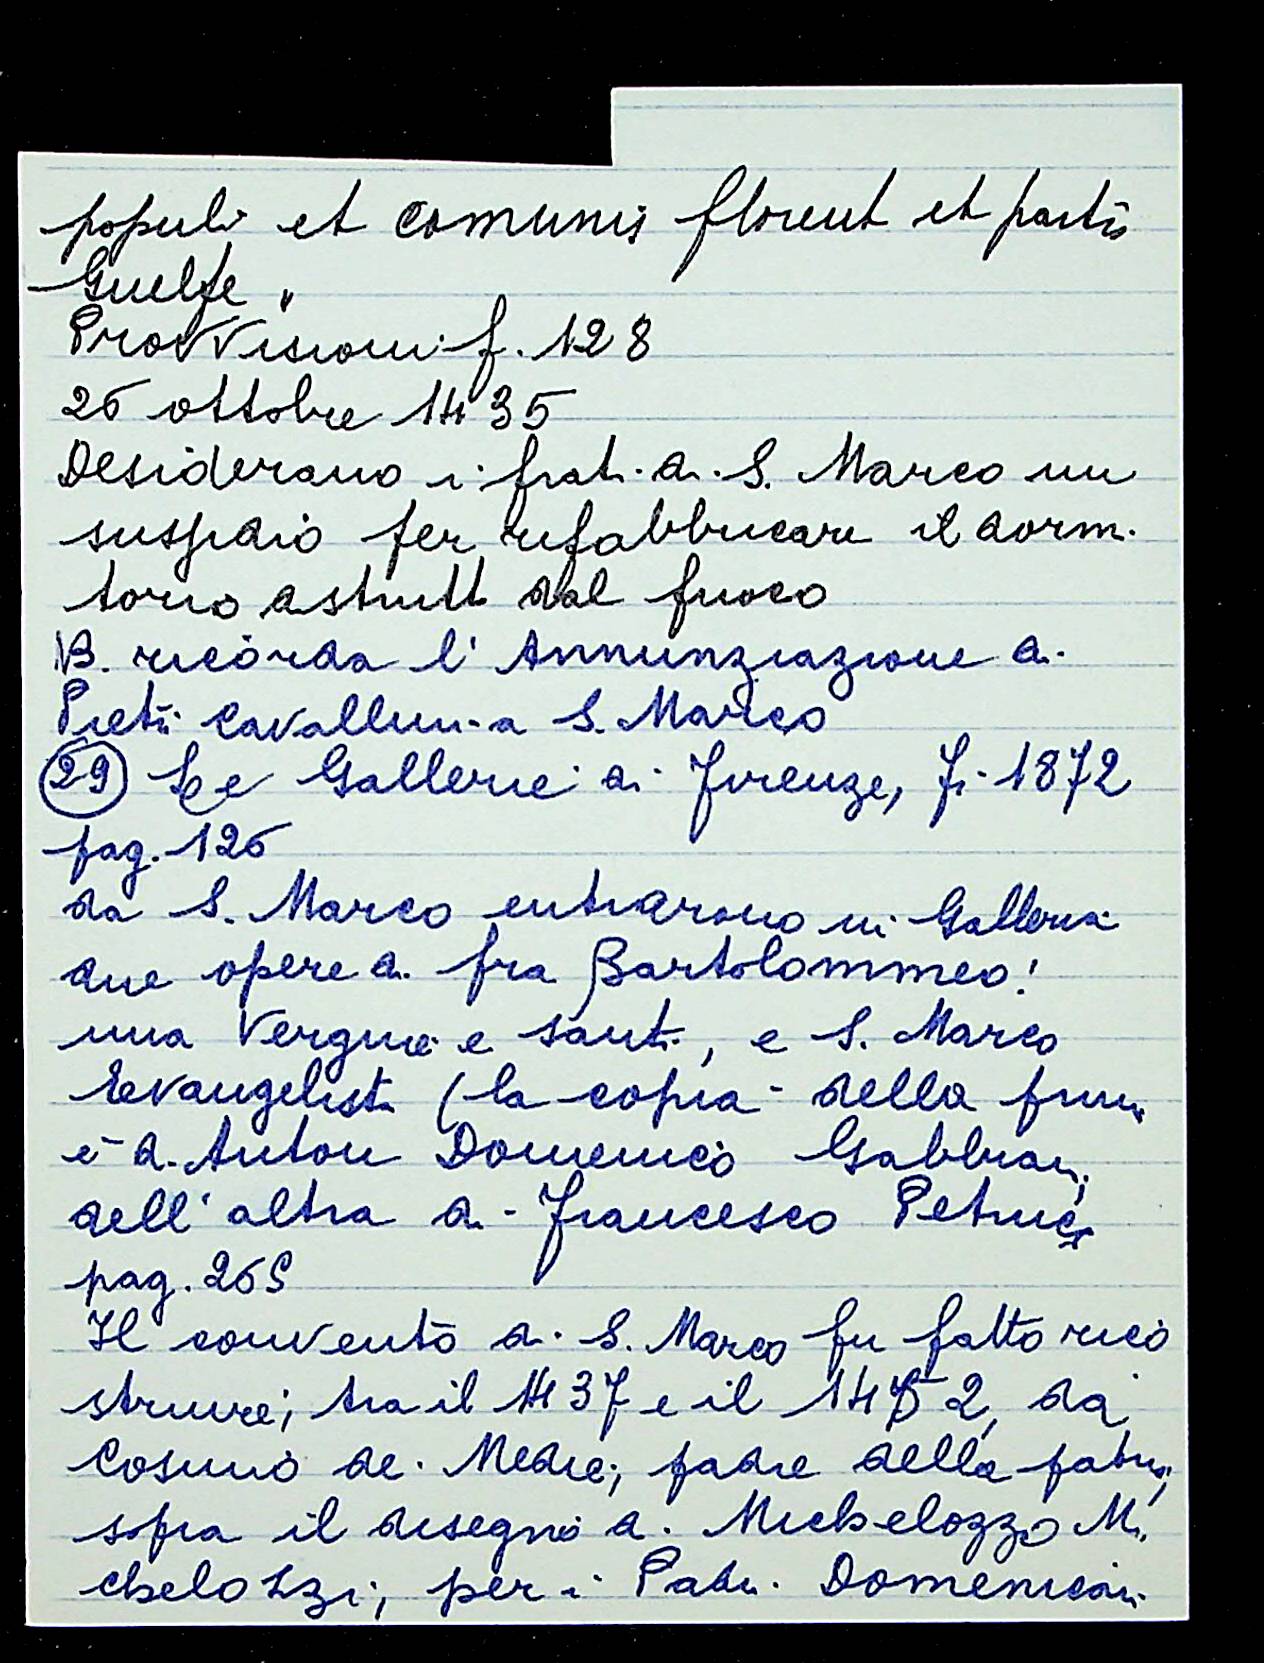 populi et comunis florent et partis
Guelfe"
Provvisioni f. 128
26 ottobre 1435
Desiderano i frati di S. Marco un
sussidio per rifabbricare il dormi
torio distrutto dal fuoco
NB. ricorda l'Annunziazione di
Pietro Cavallini a S. Marco
(29) Le Gallerie di Firenze, Fi. 1872
pag. 126
da S. Marco entrarono in Galleria
due opere di fra Bartolommeo:
una Vergine e santi, e S. Marco
Evangelista (la copia della prima
è di Anton Domenico Gabbiani,
dell'altra di Francesco Petrucci
pag. 265
Il convento di S. Marco fu fatto rico
struire, tra il 1437 e il 1452, da
Cosimo de' Medici, padre della patria,
sopra il disegno di Michelozzo Mi
chelozzi, per i Padri Domenicani